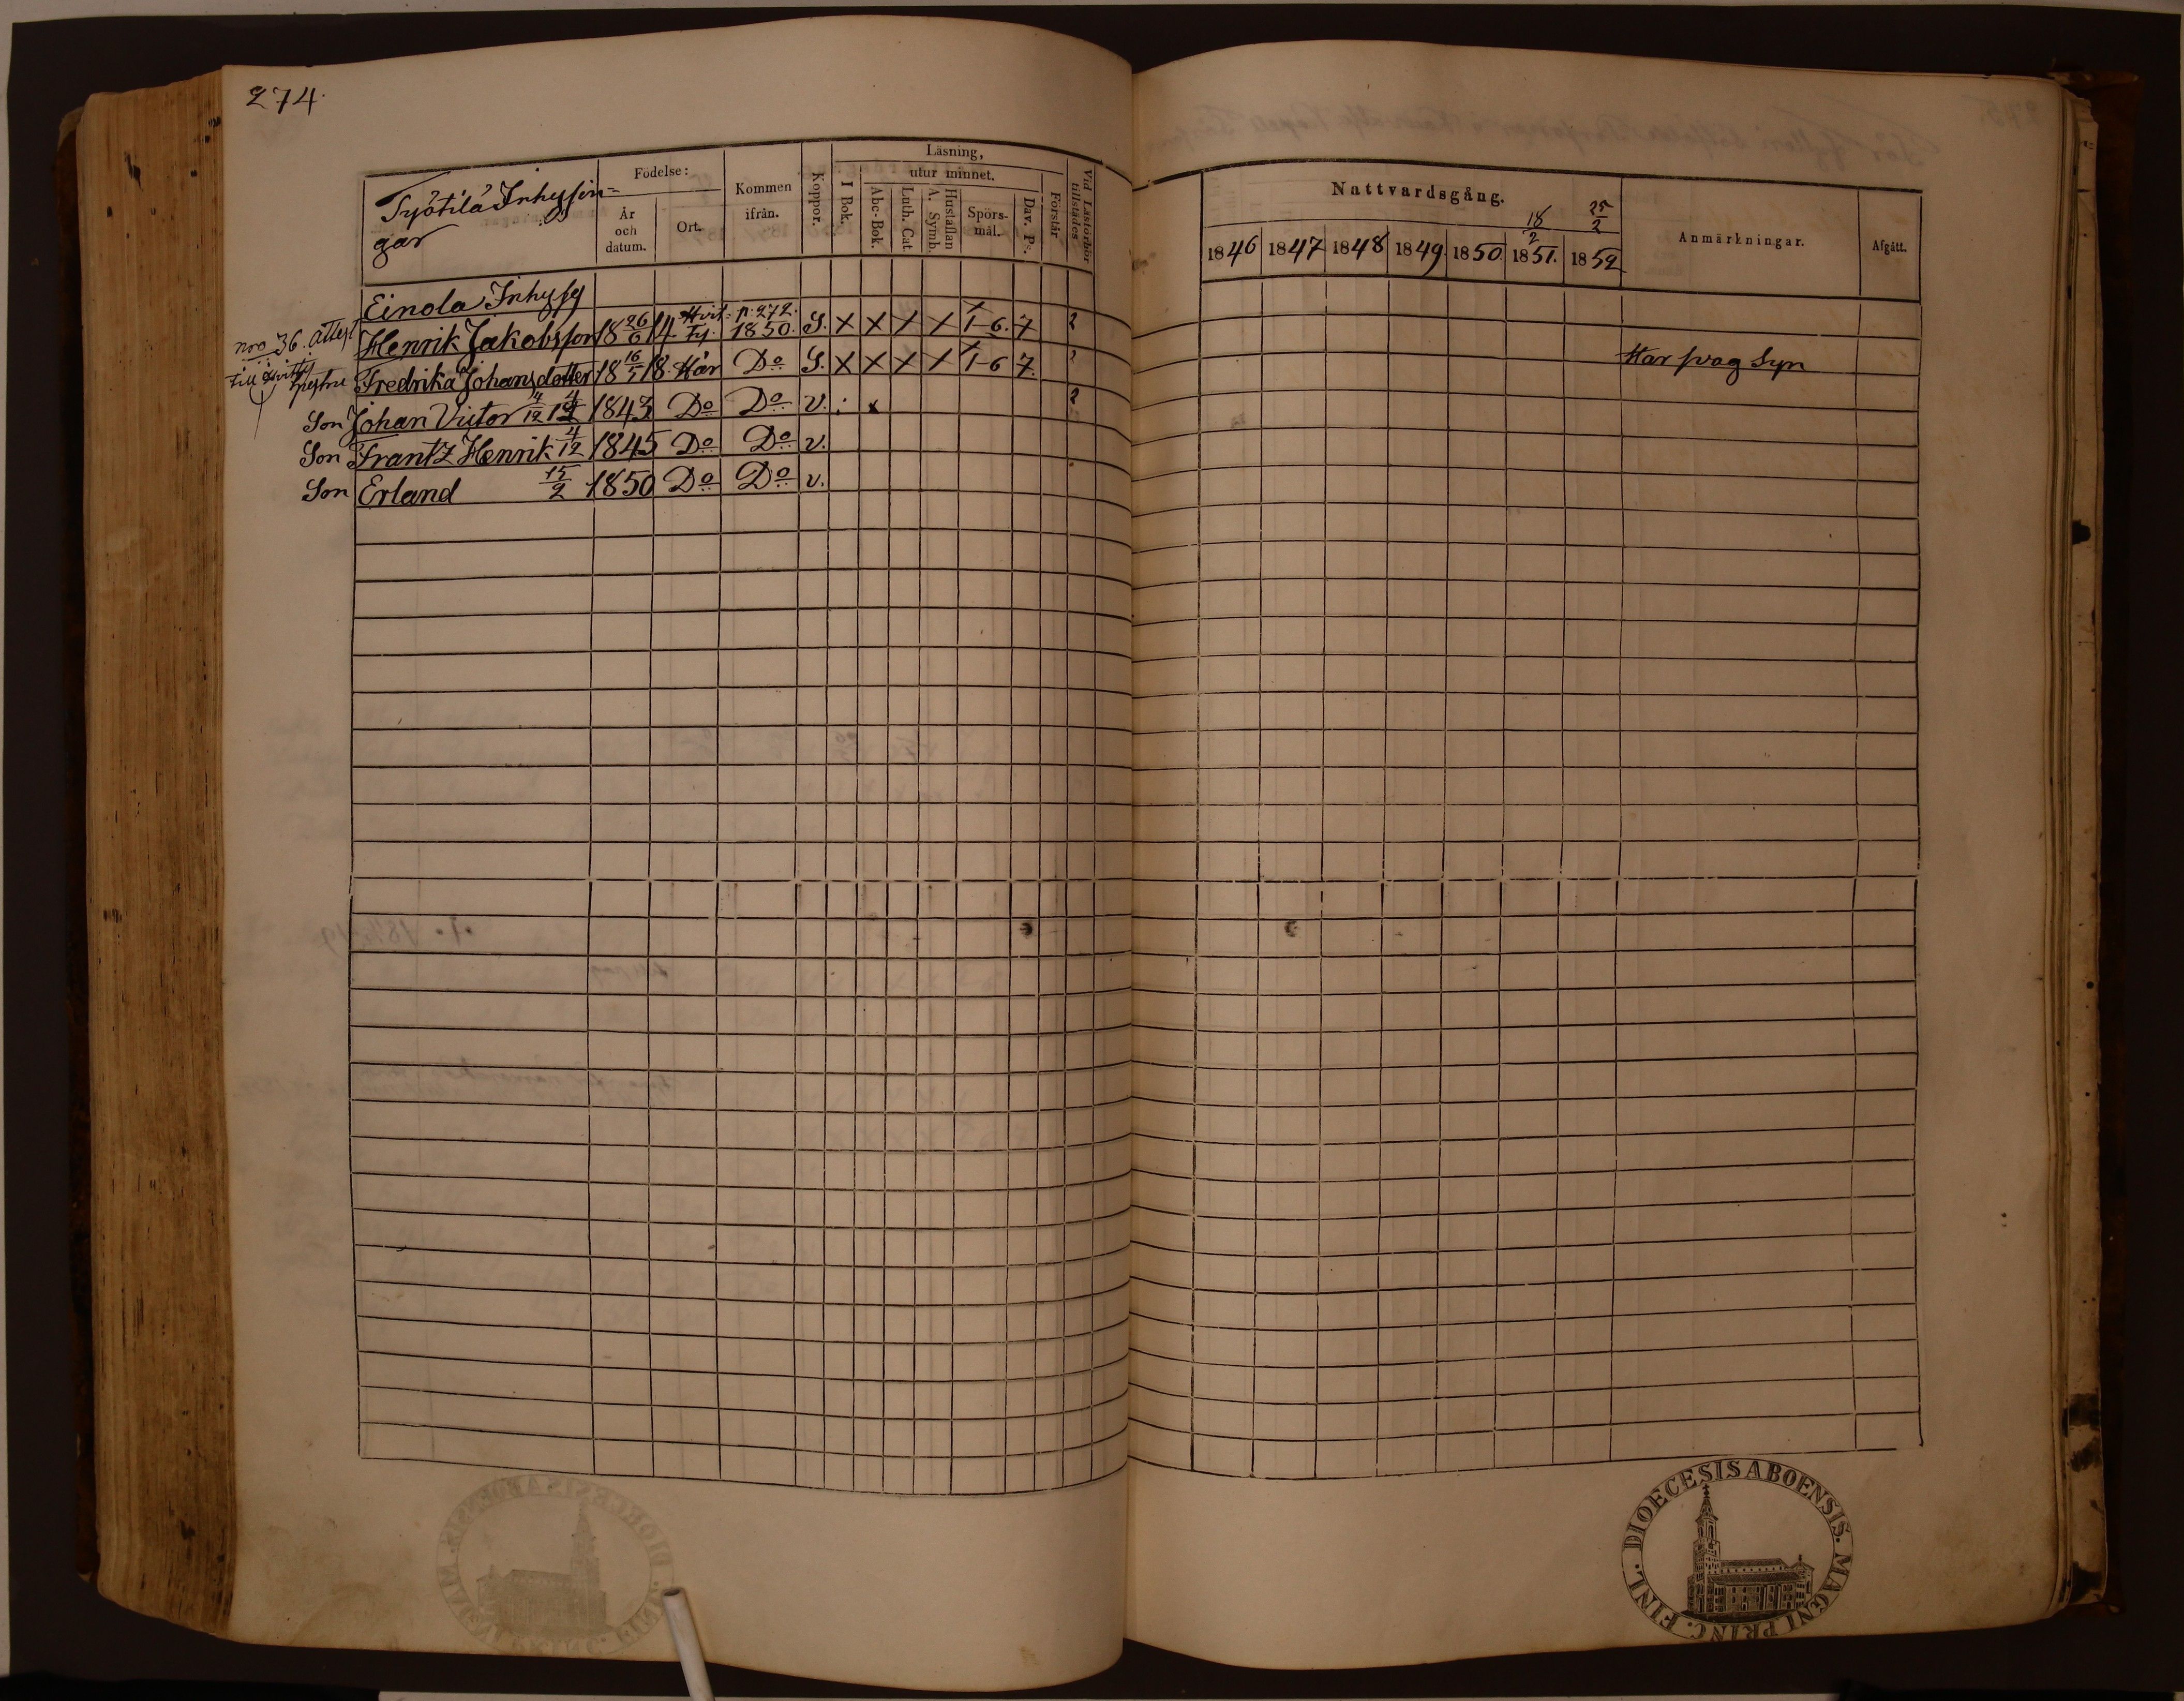 274.
Työtilä Inhysin=
gar
Födelse:
År och datum.
Ort.
Kommen ifrån.
Koppor.
Läsning,
I Bok.
utur minnet.
Abc-Bok.
Luth. Cat.
A. Symb.
Hustaflan
Spörs-mål.
Dav. Ps.
Förstår
Vid Läsförhör tillstädes
Nattvardsgång.
18/2 25/2
1846 1847 1848 1849. 1850 1851. 1852
Anmärkningar.
Afgått.
Einola Inhysg
nro 36. attest Henrik Jakobsson 18 26/6 14. Hvit. p. 272.
Ty. 1850. S. X X X X 1-6. 7 2
till Fredrika Johansdotter 18 16/5 18. Här Do S. X X X X 1-6 7. 2 Har svag Syn
Son Johan Victor 1843 Do Do V. : x 2
Son Frantz Henrik 4/12 1845 Do Do v.
Son Erland 15/2 1850 Do Do v.
DIOECESIS ABOENSIS. MAGNI PRINC. FINL.